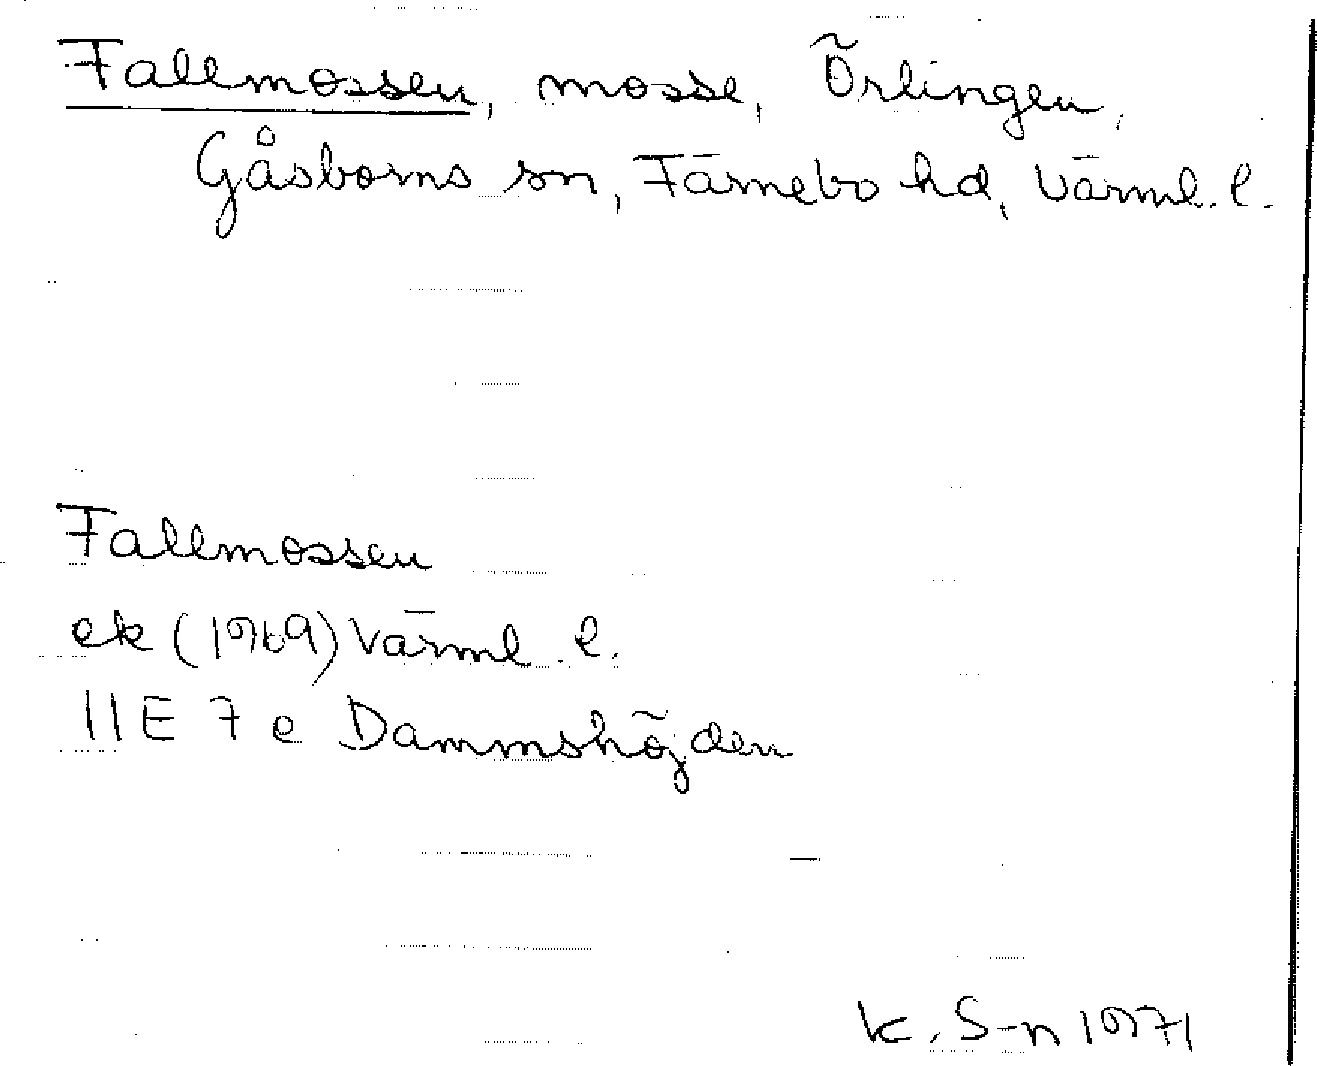 Fallmossen, mosse, Örlingen,
Gåsborns sn, Färnebo hd, Värml. l.
Fallmossen
ek (1969) Värml. l.
11E 7 e Dammshöjden
K. S-n 1971